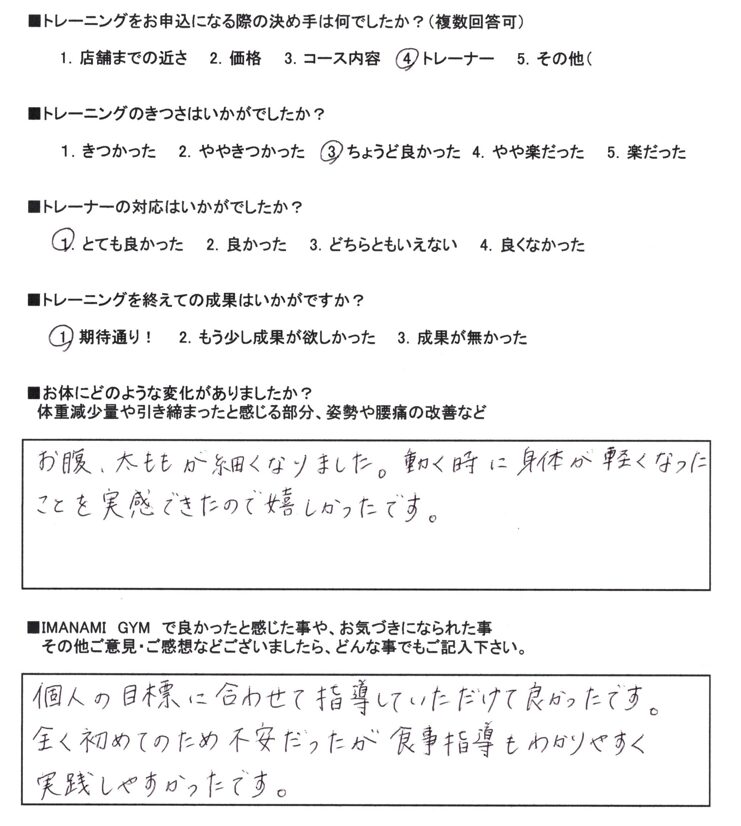 ■トレーニングをお申込になる際の決め手は何でしたか？（複数回答可）
1. 店舗までの近さ 2. 価格 3. コース内容 4 トレーナー 5. その他（
■トレーニングのきつさはいかがでしたか？
1. きつかった 2. ややきつかった 3 ちょうど良かった 4. やや楽だった 5. 楽だった
■トレーナーの対応はいかがでしたか？
1. とても良かった 2. 良かった 3. どちらともいえない 4. 良くなかった
■トレーニングを終えての成果はいかがですか？
1 期待通り！ 2. もう少し成果が欲しかった 3. 成果が無かった
■お体にどのような変化がありましたか？
体重減少量や引き締まったと感じる部分、姿勢や腰痛の改善など
お腹、太ももが細くなりました。動く時に身体が軽くなった
ことを実感できたので嬉しかったです。
■IMANAMI GYM で良かったと感じた事や、お気づきになられた事
その他ご意見・ご感想などございましたら、どんな事でもご記入下さい。
個人の目標に合わせて指導していただけて良かったです。
全く初めてのため不安だったが食事指導もわかりやすく
実践しやすかったです。